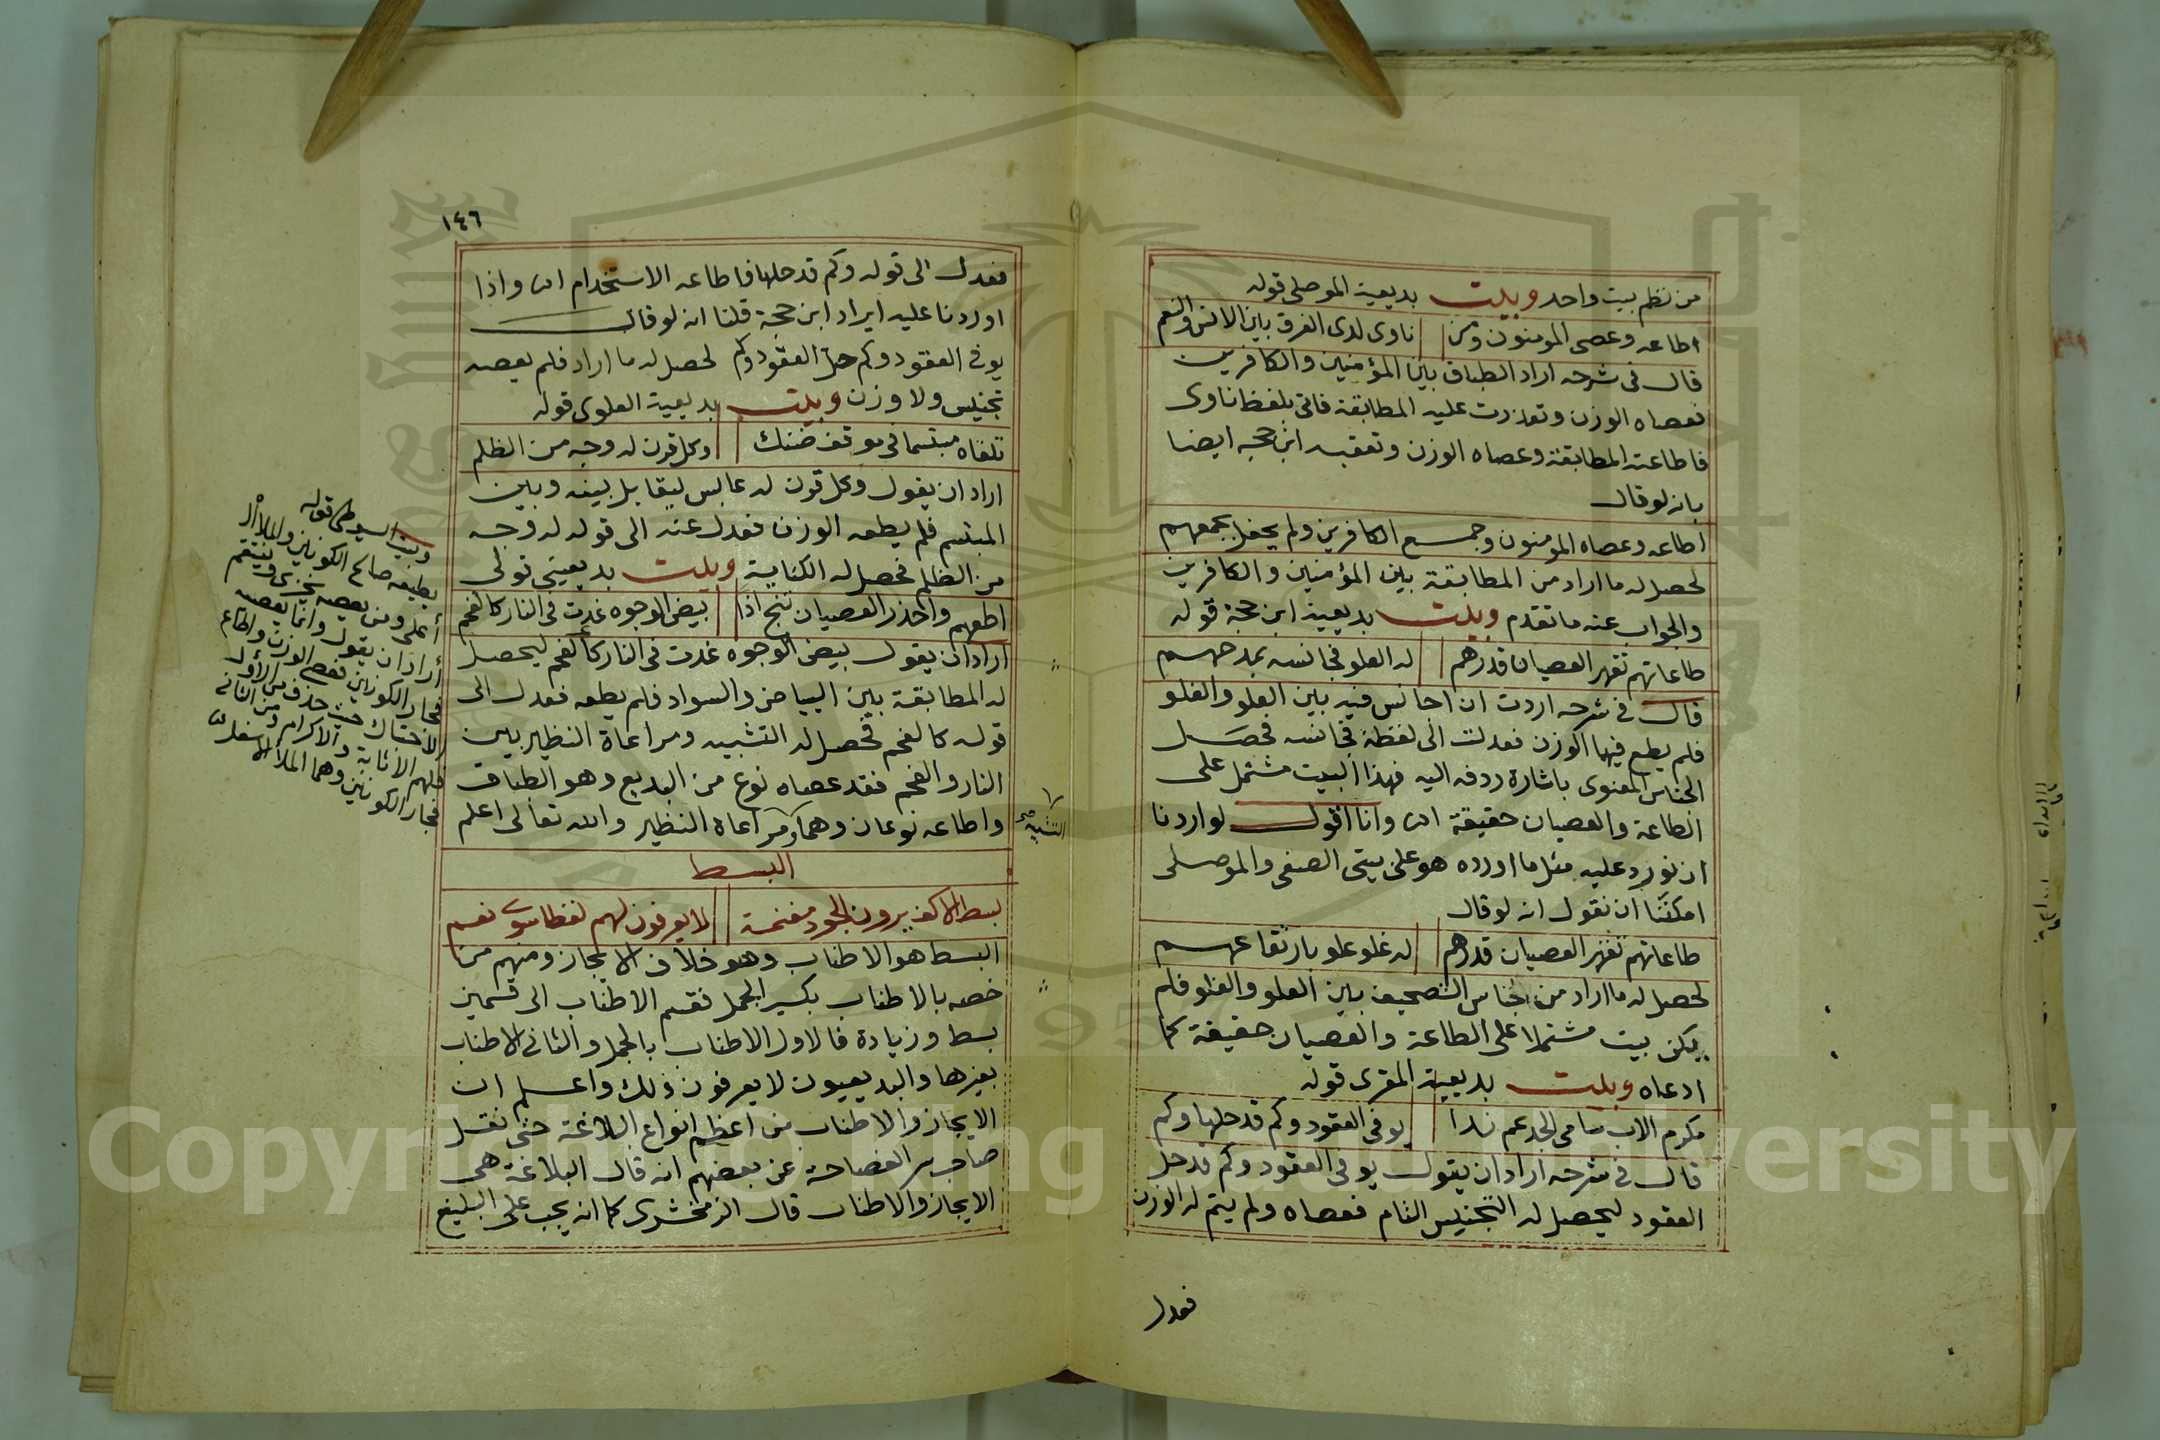 من نظم بيت واحد وبيت بديعية الموصلي قوله
اطاعه وعصى المومنون ومن ناوى لدى الفرق بين الانس والنعم
قال في شرحه اراد الطباق بين المؤمنين والكافرين
فعصاه الوزن وتعذرت عليه المطابقة فاتى بلفظ ناوى
فاطاعته المطابقة وعصاه الوزن وتعقبه ابن حجه ايضا
بانه لو قال
اطاعه وعصاه المومنون وجمع الكافرين ولم يحفل بجمعهم
لحصل له ما اراد من المطابقة بين المؤمنين والكافرين
والجواب عنه ما تقدم وبيت بديعية ابن حجة قوله
طاعاتهم تقهر العصيان قدرهم له العلو فجانسه بمدحهم
قال في شرحه اردت ان اجانس فيه بين العلو والغلو
فلم يطع فيها الوزن فعدلت الى لفظة فجانسه فحصل
الجناس المعنوى باشارة ردفه اليه فهذا البيت مشتمل على
الطاعة والعصيان حقيقة اه وانا اقول لو اردنا
ان نورد عليه مثل ما اورده هو على بيتى الصفى والموصلى
امكننا ان نقول انه لو قال
طاعاتهم تقهر العصيان قدرهم له غلو علو بارتفاعهم
لحصل له ما اراد من الجناس التصحيف بين العلو والغلو فلم
يكن بيت مشتملا على الطاعة والعصيان حقيقة كما
ادعاه وبيت بديعية المقرى قوله
مكرم الاب سامى الجد عم ندا يوفى العقود وكم قد حلها وكم
قال في شرحه اراد ان يقول يوفى العقود وكم قد حل
العقود ليحصل له التجنيس التام فعصاه ولم يتم له الوزن
فعدل
١٤٦
فعدل الى قوله وكم قد حلها فاطاعه الاستخدام اه واذا
اوردنا عليه ايراد ابن حجة قلنا انه لو قال
يوفى العقود وكم حل العقود وكم لحصل له ما اراد فلم يعصه
تجنيس ولا وزن وبيت بديعية العلوى قوله
تلقاه مبتسما فى موقف ضنك وكل قرن له وجه من الظلم
اراد ان يقول وكل قرن له عابس ليقابل بينه وبين
المبتسم فلم يطعه الوزن فعدل عنه الى قوله له وجه
من الظلم فحصل له الكناية وبيت بديعيتى قولى
اطعهم واحذر العصيان تنج اذا بيض الوجوه غدت فى النار كالفحم
اراد ان يقول بيض الوجوه غدت فى النار كالفحم ليحصل
له المطابقة بين البياض والسواد فلم يطعه فعدل الى
قوله كالفحم فحصل له التشبيه ومراعاة النظير بين
النار والفحم فقد عصاه نوع من البديع وهو الطباق
واطاعه نوعان وهما ومراعاة النظير والله تعالى اعلم
التشبيه صح
البسط
بسط الاكف يرون الجود مغنمة لا يعرفون لهم لفظا سوى نعم
البسط هو الاطناب وهو خلاف الايجاز ومنهم من
خصه بالاطناب بكسير الجمل فقسم الاطناب الى قسمين
بسط وزيادة فالاول الاطناب بالجمل والثانى الاطناب
بغيرها والبديعيون لا يعرفون ذلك واعلم ان
الايجاز والاطناب من اعظم انواع البلاغة حتى نقل
صاحب سر الفصاحة عن بعضهم انه قال البلاغة هى
الايجاز والاطناب قال الزمخشرى كما انه يجب على البليغ
وبيت السيوطى قوله
يطيعه صالح الكونين والملأ ال
أعلى ومن يعصه يخزى وينتقم
أراد ان يقول وانما يعصه
فجار الكونين فعصى الوزن واطاع
الاحتباك حيث حذف من الأول
فلهم الاثابة والاكرام ومن الثانى
فجار الكونين وهما الملأ الاسفل
Copyright © King Saud University
195